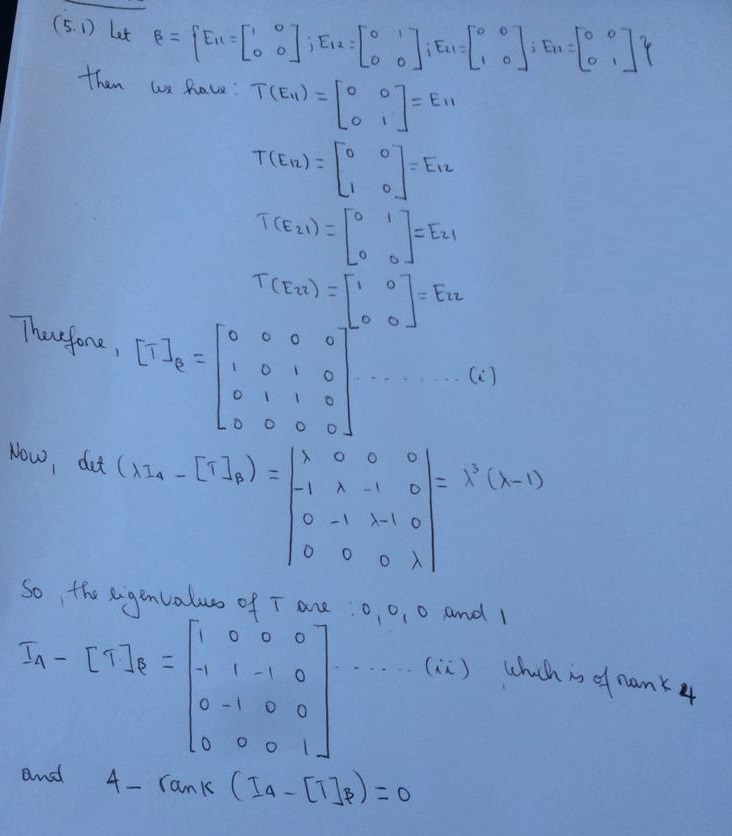 (5.1) Let β = { E11 = [1 0; 0 0] ; E12 = [0 1; 0 0] ; E21 = [0 0; 1 0] ; E22 = [0 0; 0 1] }
Then we have: T(E11) = [0 0; 0 1] = E11
T(E12) = [0 0; 1 0] = E12
T(E21) = [0 1; 0 0] = E21
T(E22) = [1 0; 0 0] = E22
Therefore, [T]β = [0 0 0 0; 1 0 1 0; 0 1 1 0; 0 0 0 0] ........ (i)
Now, det (λI4 - [T]β) = |λ 0 0 0; -1 λ -1 0; 0 -1 λ-1 0; 0 0 0 λ| = λ³ (λ-1)
So, the eigenvalues of T are : 0, 0, 0 and 1
I4 - [T]β = [1 0 0 0; -1 1 -1 0; 0 -1 0 0; 0 0 0 1] ....... (ii) which is of rank 4
and 4 - rank (I4 - [T]β) = 0